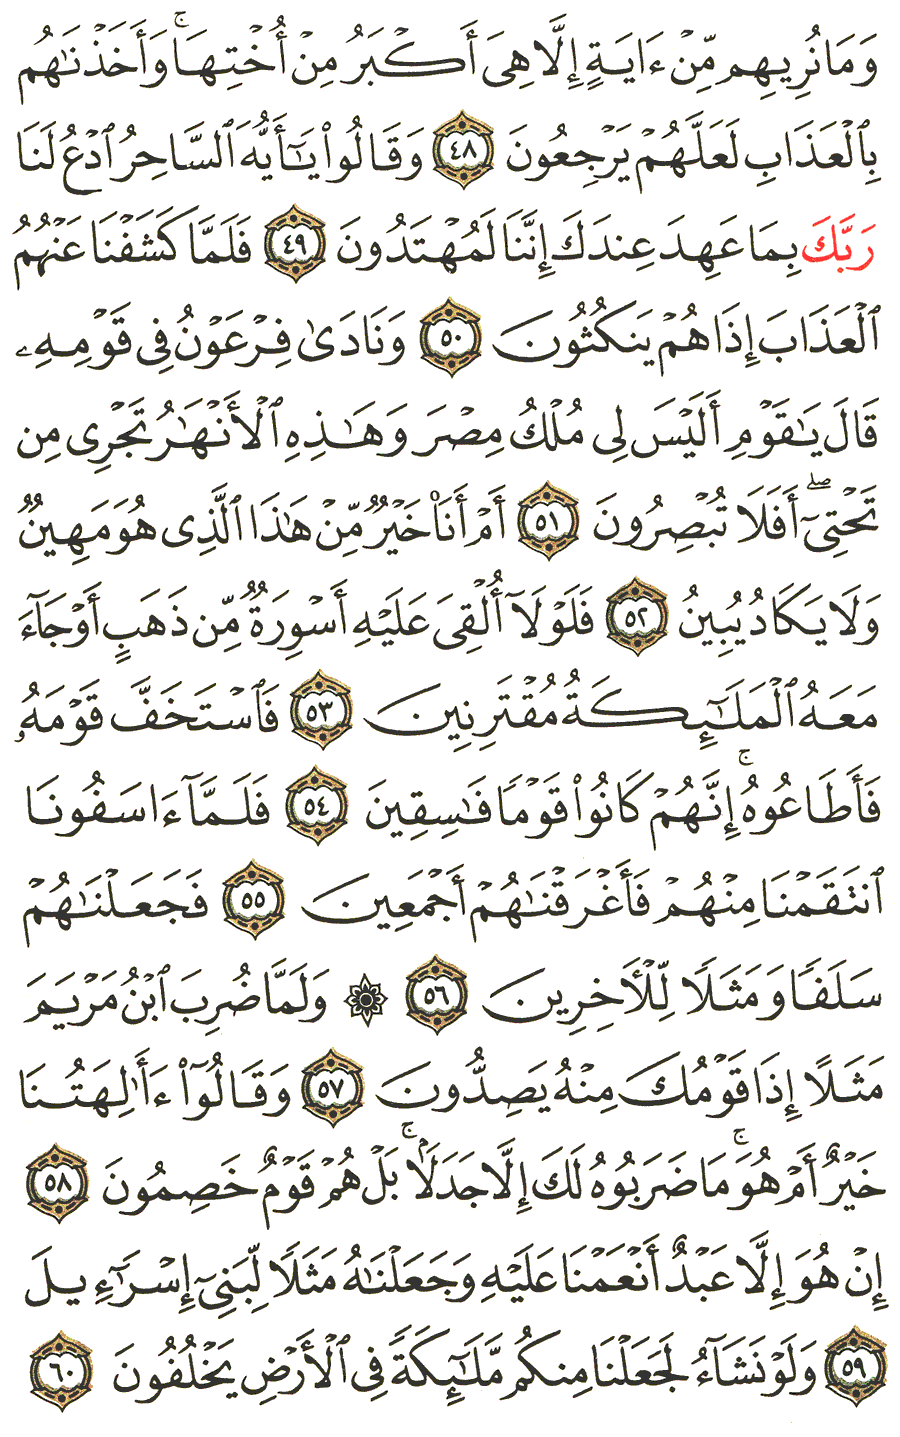 وَمَا نُرِيهِم مِّنْ ءَايَةٍ إِلَّا هِىَ أَكْبَرُ مِنْ أُخْتِهَا ۚ وَأَخَذْنَٰهُم
بِٱلْعَذَابِ لَعَلَّهُمْ يَرْجِعُونَ ٤٨ وَقَالُوا۟ يَٰٓأَيُّهَ ٱلسَّاحِرُ ٱدْعُ لَنَا
رَبَّكَ بِمَا عَهِدَ عِندَكَ إِنَّنَا لَمُهْتَدُونَ ٤٩ فَلَمَّا كَشَفْنَا عَنْهُمُ
ٱلْعَذَابَ إِذَا هُمْ يَنكُثُونَ ٥٠ وَنَادَىٰ فِرْعَوْنُ فِى قَوْمِهِۦ
قَالَ يَٰقَوْمِ أَلَيْسَ لِى مُلْكُ مِصْرَ وَهَٰذِهِ ٱلْأَنْهَٰرُ تَجْرِى مِن
تَحْتِىٓ ۖ أَفَلَا تُبْصِرُونَ ٥١ أَمْ أَنَا۠ خَيْرٌ مِّنْ هَٰذَا ٱلَّذِى هُوَ مَهِينٌ
وَلَا يَكَادُ يُبِينُ ٥٢ فَلَوْلَآ أُلْقِىَ عَلَيْهِ أَسْوِرَةٌ مِّن ذَهَبٍ أَوْ جَآءَ
مَعَهُ ٱلْمَلَٰٓئِكَةُ مُقْتَرِنِينَ ٥٣ فَٱسْتَخَفَّ قَوْمَهُۥ
فَأَطَاعُوهُ ۚ إِنَّهُمْ كَانُوا۟ قَوْمًا فَٰسِقِينَ ٥٤ فَلَمَّآ ءَاسَفُونَا
ٱنتَقَمْنَا مِنْهُمْ فَأَغْرَقْنَٰهُمْ أَجْمَعِينَ ٥٥ فَجَعَلْنَٰهُمْ
سَلَفًا وَمَثَلًا لِّلْـَٔاخِرِينَ ٥٦ ۞ وَلَمَّا ضُرِبَ ٱبْنُ مَرْيَمَ
مَثَلًا إِذَا قَوْمُكَ مِنْهُ يَصِدُّونَ ٥٧ وَقَالُوٓا۟ ءَأَٰلِهَتُنَا
خَيْرٌ أَمْ هُوَ ۚ مَا ضَرَبُوهُ لَكَ إِلَّا جَدَلًۢا ۚ بَلْ هُمْ قَوْمٌ خَصِمُونَ ٥٨
إِنْ هُوَ إِلَّا عَبْدٌ أَنْعَمْنَا عَلَيْهِ وَجَعَلْنَٰهُ مَثَلًا لِّبَنِىٓ إِسْرَٰٓءِيلَ
٥٩ وَلَوْ نَشَآءُ لَجَعَلْنَا مِنكُم مَّلَٰٓئِكَةً فِى ٱلْأَرْضِ يَخْلُفُونَ ٦٠